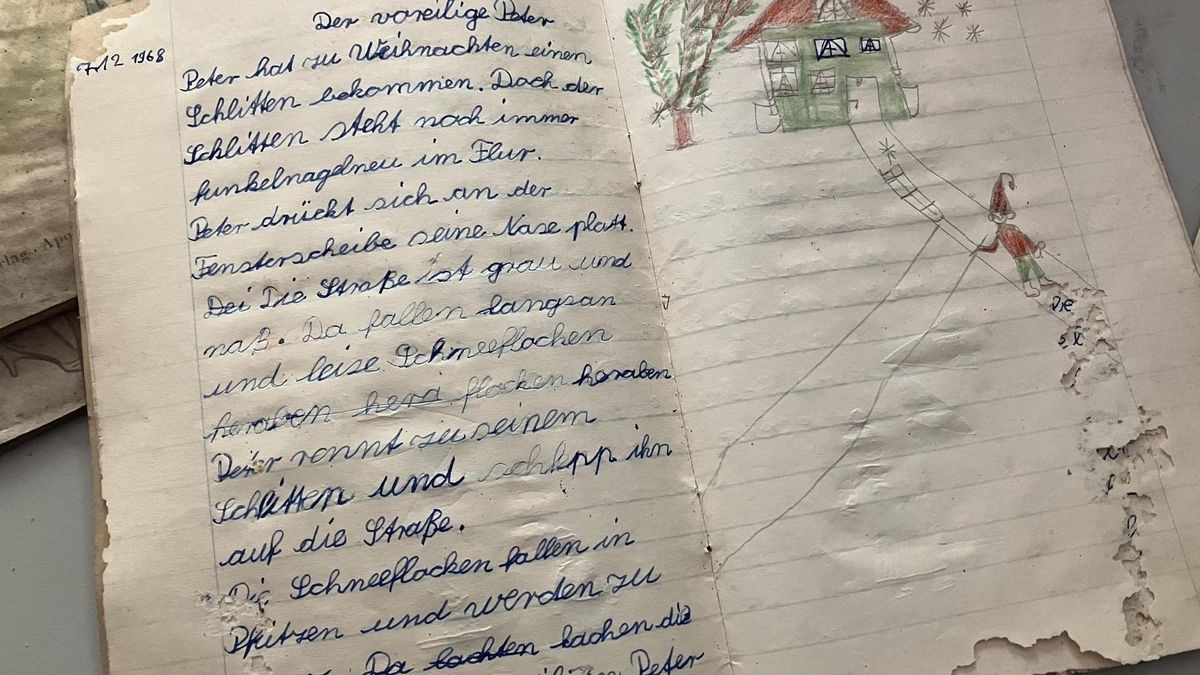 Der voreilige Peter
7.12 1968
Peter hat zu Weihnachten einen
Schlitten bekommen. Doch der
Schlitten steht noch immer
funkelnagelneu im Flur.
Peter drückt sich an der
Fensterscheibe seine Nase platt.
Dei Die Straße ist grau und
naß. Da fallen langsan
und leise Schneeflocken
heraben herd flocken heraben
Peter rennt zu seinem
Schlitten und schlepp ihn
auf die Straße.
Die Schneeflocken fallen in
Pfitzen und werden zu
Da lachten lachen die
Peter
lag. Apo